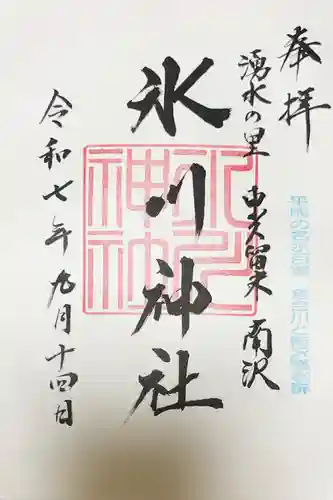 奉拝
湧水の里 東久留米 南沢
氷川神社
氷川神社
令和七年九月十四日
平成の名水百選